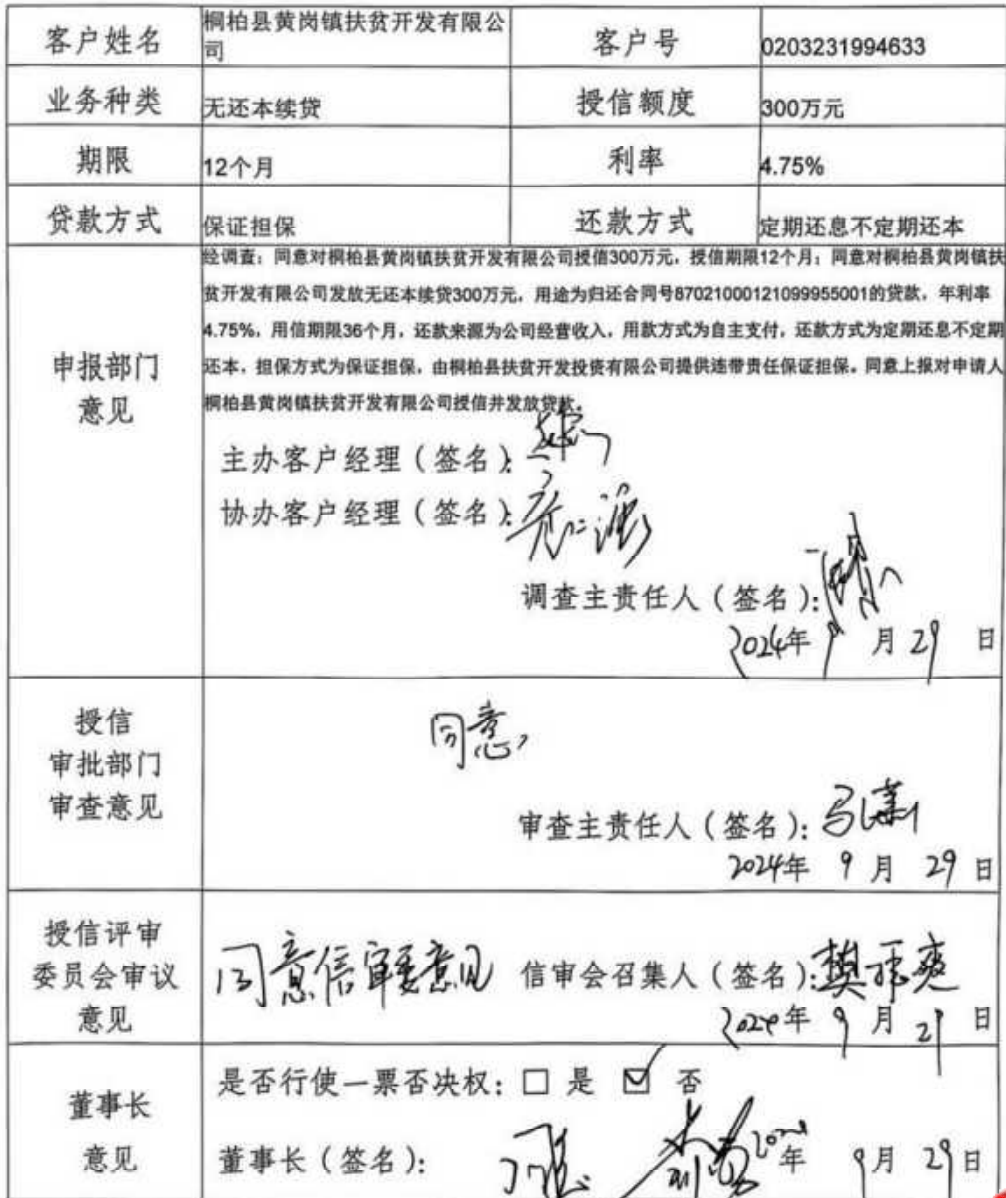 客户姓名 桐柏县黄岗镇扶贫开发有限公司 客户号 0203231994633
业务种类 无还本续贷 授信额度 300万元
期限 12个月 利率 4.75%
贷款方式 保证担保 还款方式 定期还息不定期还本
申报部门
意见
经调查：同意对桐柏县黄岗镇扶贫开发有限公司授信300万元，授信期限12个月；同意对桐柏县黄岗镇扶
贫开发有限公司发放无还本续贷300万元，用途为归还合同号87021000121099955001的贷款，年利率
4.75%，用信期限36个月，还款来源为公司经营收入，用款方式为自主支付，还款方式为定期还息不定期
还本，担保方式为保证担保，由桐柏县扶贫开发投资有限公司提供连带责任保证担保。同意上报对申请人
桐柏县黄岗镇扶贫开发有限公司授信并发放贷款。
主办客户经理（签名）：
协办客户经理（签名）：
调查主责任人（签名）：
2024年 9 月 29 日
授信
审批部门
审查意见
同意
审查主责任人（签名）：
2024年 9 月 29 日
授信评审
委员会审议
意见
同意信审委意见 信审会召集人（签名）：
2024年 9 月 29 日
董事长
意见
是否行使一票否决权：☐ 是 ☑ 否
董事长（签名）： 2024年 9月 29日